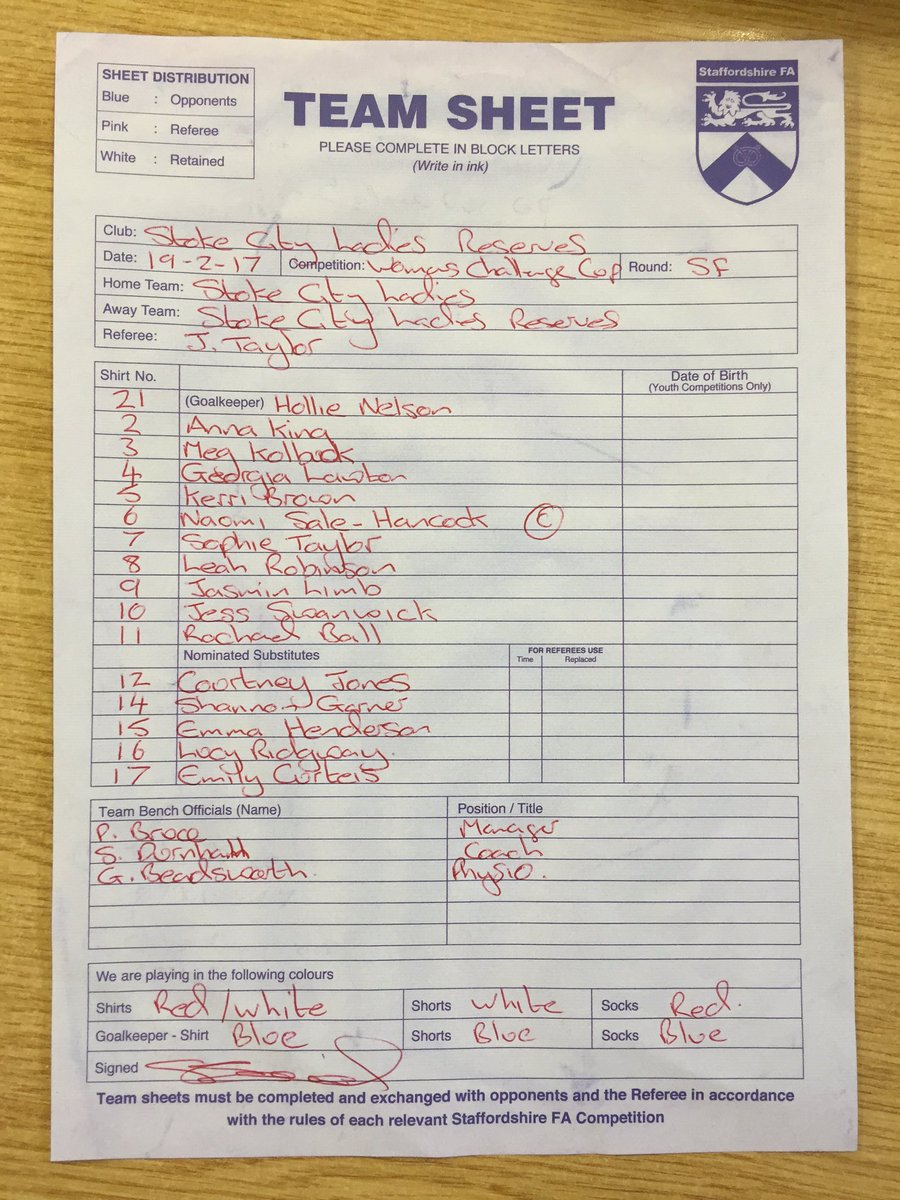 SHEET DISTRIBUTION
Blue : Opponents
Pink : Referee
White : Retained
TEAM SHEET
PLEASE COMPLETE IN BLOCK LETTERS
(Write in ink)
Staffordshire FA
Club: Stoke City Ladies Reserves
Date: 19-2-17 Competition: Womans Challenge Cup Round: SF
Home Team: Stoke City Ladies
Away Team: Stoke City Ladies Reserves
Referee: J. Taylor
Shirt No. Date of Birth
(Youth Competitions Only)
21 (Goalkeeper) Hollie Nelson
2 Anna King
3 Meg Kolbuck
4 Georgia Lawton
5 Kerri Brown
6 Naomi Sale-Hancock C
7 Sophie Taylor
8 Leah Robinson
9 Jasmin Limb
10 Jess Swanwick
11 Rachael Ball
Nominated Substitutes FOR REFEREES USE
Time Replaced
12 Courtney Jones
14 Shannon Garner
15 Emma Henderson
16 Lucy Ridgway.
17 Emily Curteis
Team Bench Officials (Name) Position / Title
P. Bruce Manager
S. Coach
G. Beadsworth. Physio.
We are playing in the following colours
Shirts Red/White Shorts White Socks Red.
Goalkeeper - Shirt Blue Shorts Blue Socks Blue
Signed
Team sheets must be completed and exchanged with opponents and the Referee in accordance
with the rules of each relevant Staffordshire FA Competition